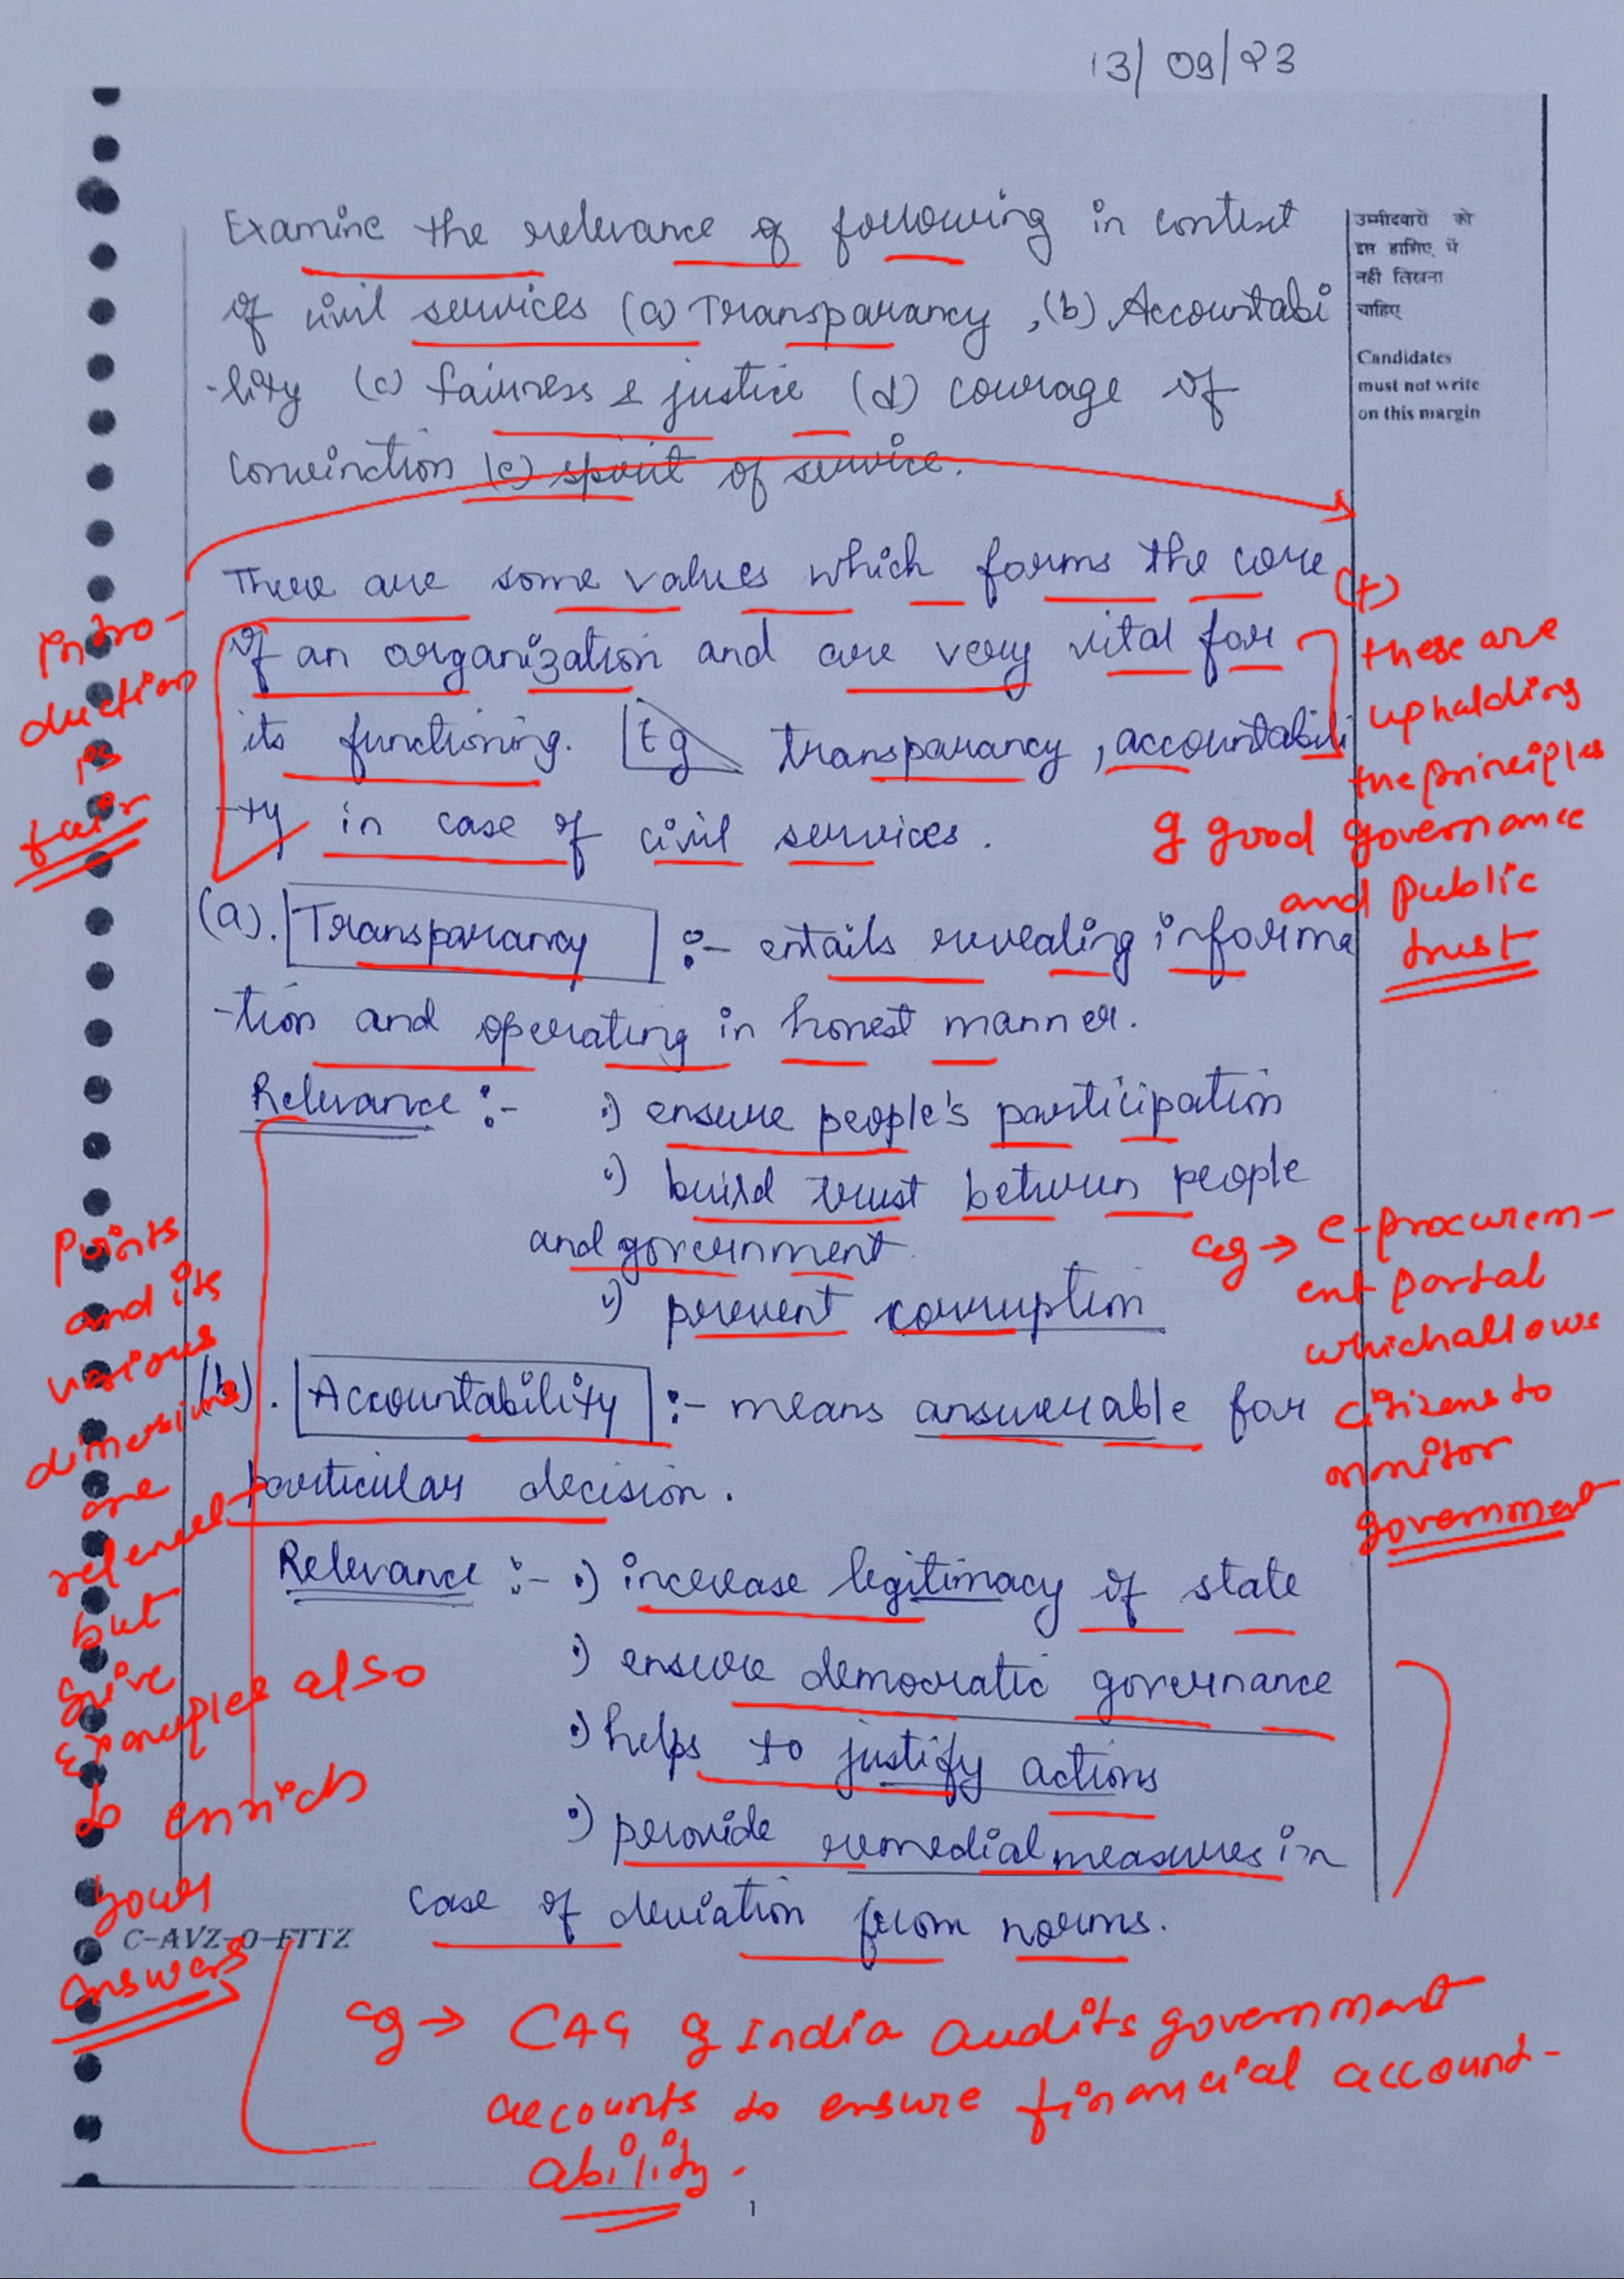 13/09/23
Examine the relevance of following in context
of civil services (a) Transparancy , (b) Accountabi
-lity (c) fairness & justice (d) courage of
convinction (e) spirit of service.
उम्मीदवारों को
इस हाशिए में
नहीं लिखना
चाहिए
Candidates
must not write
on this margin
There are some values which forms the core
of an organization and are very vital for
its functioning. Eg transparancy , accountabili
-ty in case of civil services .
Intro-
duction
is
fair
(+)
these are
upholding
the principles
of good governance
and public
trust
(a). Transparancy :- entails revealing informa
-tion and operating in honest manner.
Relevance :- •) ensure people's participation
•) build trust between people
and government
•) prevent corruption
eg → e-procurem-
ent portal
which allows
citizens to
monitor
government
(b). Accountability :- means answerable for
particular decision .
Relevance :- •) increase legitimacy of state
•) ensure democratic governance
•) helps to justify actions
•) provide remedial measures in
case of deviation from norms.
Points
and its
various
dimensions
are
relevant
but
give
examples also
to enrich
your
answers
C-AVZ-O-FTTZ
eg → CAG of India audits government
accounts to ensure financial account-
ability.
1